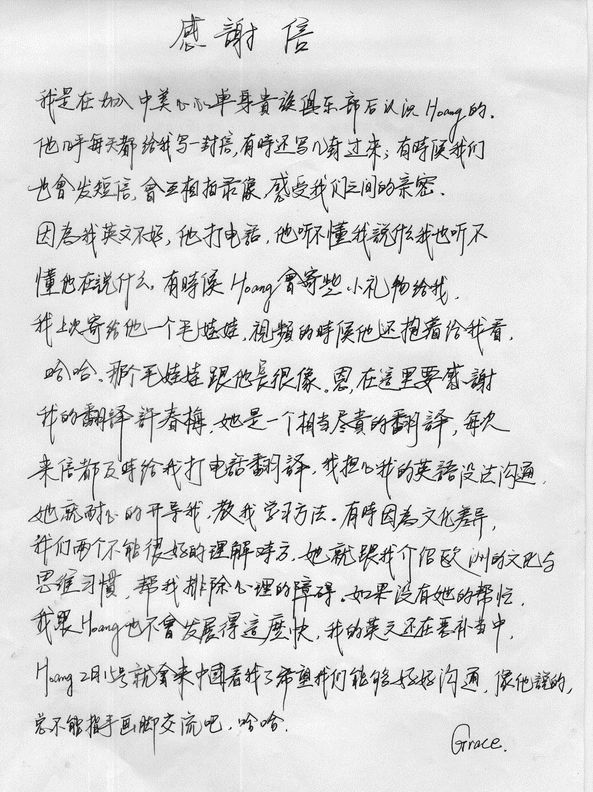 感謝信
我是在加入中美心心单身貴族俱乐部后认识Hoang的.
他几乎每天都给我写一封信,有時还写几封过来;有時候我们
也會发短信,會互相拍录像,感受我们之间的亲密.
因為我英文不好,他打电話,他听不懂我說什么我也听不
懂他在說什么,有時候Hoang會寄些小礼物给我.
我上次寄给他一个毛娃娃,視頻的時候他还抱着给我看,
哈哈.那个毛娃娃跟他長很像.恩,在這里要感謝
我的翻譯許春梅,她是一个相当尽責的翻譯,每次
来信都及時给我打电話翻譯,我担心我的英語没法沟通,
她就耐心的开导我,教我学习方法.有時因為文化差异,
我们两个不能很好的理解对方,她就跟我介绍欧洲的文化与
思维习慣,帮我排除心理的障碍.如果没有她的帮忙,
我跟Hoang也不會发展得這麼快,我的英文还在恶补当中,
Hoang 2月15号就會来中國看我了希望我们能够好好沟通,像他說的,
总不能指手画脚交流吧,哈哈.
Grace.